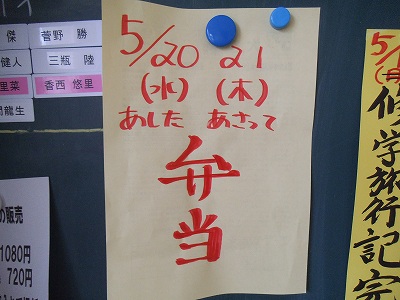 傑 菅野 勝
健人 三瓶 陸
里菜 香西 悠里
龍生
5/20 21
(水) (木)
あした あさって
弁当
販売
1080円
720円
5/
修学旅行記完